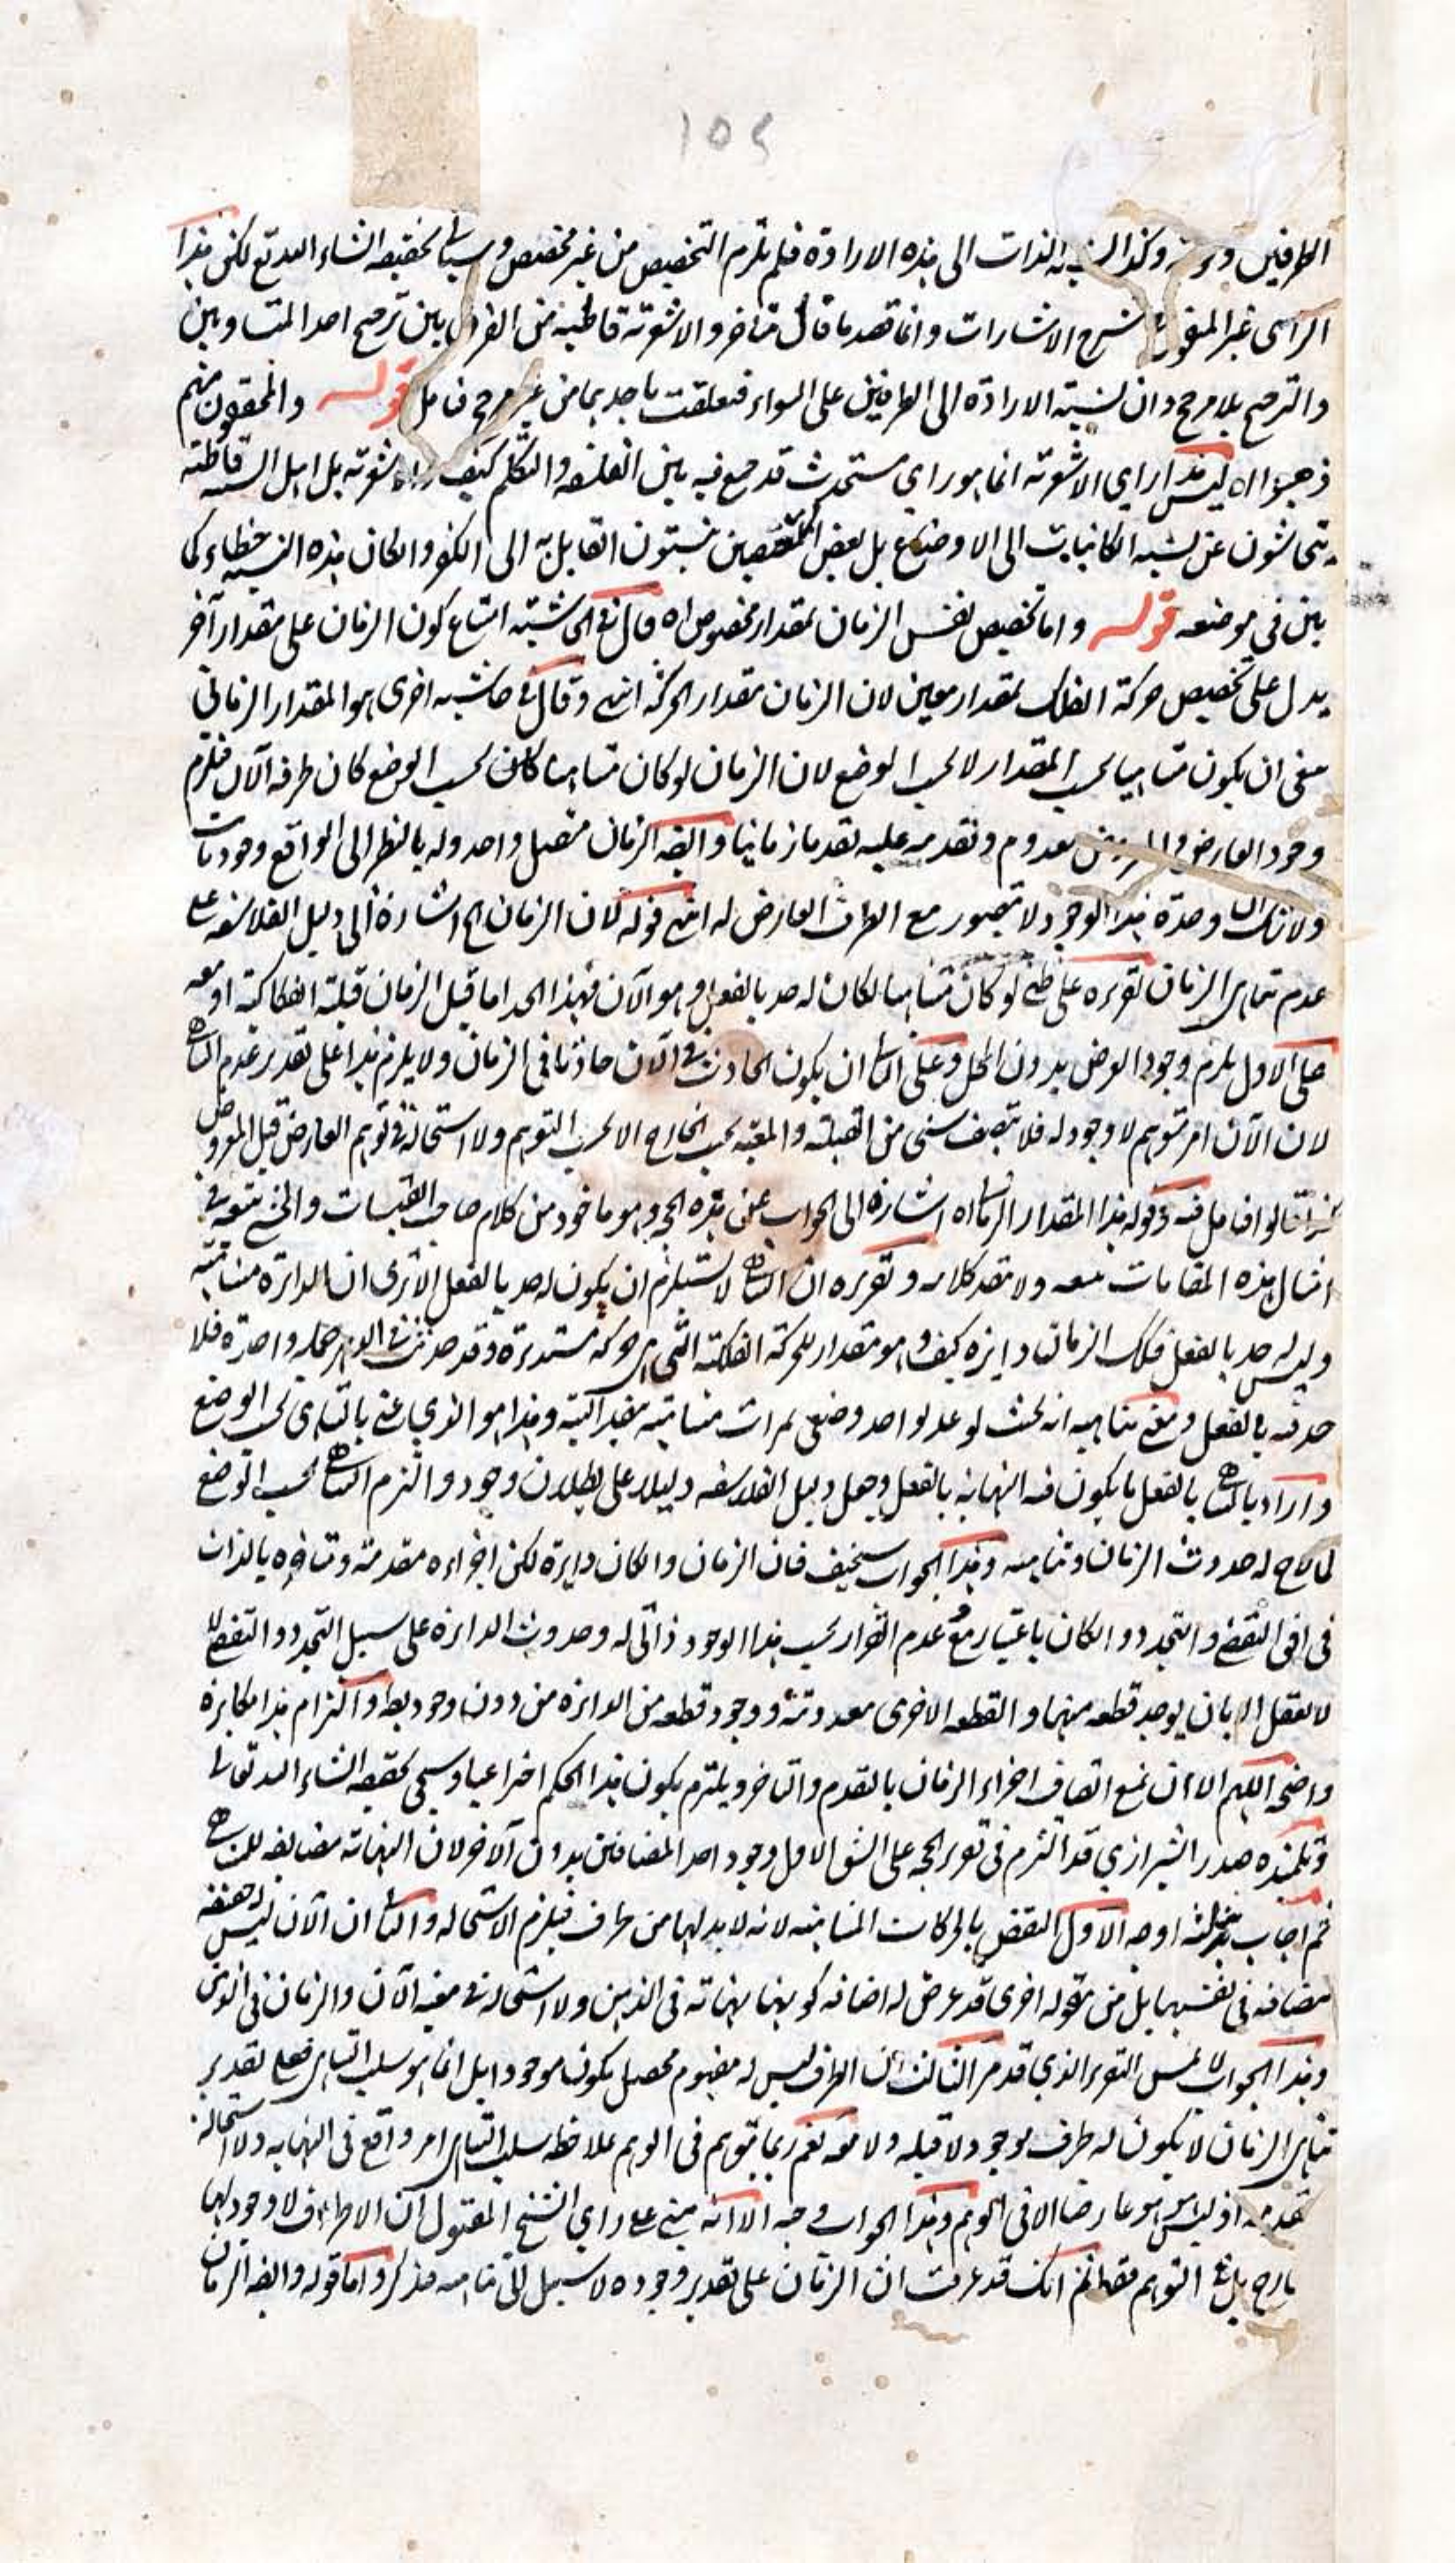 ١٥٤
الطرفين وكذا النسبة الذات الى هذه الارادة فلم يلزم التخصيص من غير مخصص وسياتى تحقيقه انشاء الله تع لكن هذا
الراى غير المنقول شرح الاشارات وانما قصد ما قال متاخرو الاشعرية قاطبة من الفرق بين ترجيح احد المتساويين
والترجيح بلا مرجح وان نسبة الارادة الى الطرفين على السواء فتعلقت باحدهما من غير مرجح فتامل قوله والمحققون منهم
ذهبوا اه ليس هذا راي الاشعرية انما هو راي مستحدث قد جمع فيه بين الفلسفة والتكلم كيف والاشعرية بل اهل السنة قاطبة
يتحاشون عن نسبة الكائنات الى الاوضاع بل بعض المتعصبين ينسبون القايل به الى الكفر وان كان هذه النسبة خطاء كما
بين في موضعه قوله واما تخصيص نفس الزمان بمقدار مخصوص اه قال في الحاشية امتناع كون الزمان على مقدار آخر
يدل على تخصيص حركة الفلك بمقدار معين لان الزمان مقدار الحركة انتهى وقال في حاشية اخرى هو المقدار الزماني
ينبغى ان يكون متناهيا بحسب المقدار لا بحسب الوضع لان الزمان لو كان متناهيا بحسب الوضع كان طرفه الآن فيلزم
وجود العارض والمعروض معدوم وتقدمه عليه تقدما زمانيا وايضا الزمان متصل واحد وله بالنظر الى الواقع وجود ثابت
ولا شك ان وحدة هذا الوجود لا يتصور مع الطرف العارض له انتهى قوله لان الزمان الخ اشارة الى دليل الفلاسفة على
عدم تناهى الزمان تقريره على لو كان متناهيا لكان له حد بالفعل وهو الآن فهذا الحد اما قبل الزمان قبلية انفكاكية او معه
على الاول يلزم وجود العرض بدون المحل وعلى الثانى ان يكون الحادث في الآن حادثا في الزمان ولا يلزم هذا على تقدير عدم التناهى
لان الآن امر متوهم لا وجود له فلا يتصف بشى من القبلية والمعية بحسب الخارج الا بحسب التوهم ولا استحالة في توهم العارض قبل المعروض
كذا قالوا فتامل فيه وقوله هذا المقدار الزمانى اه اشارة الى الجواب عن هذه الحجة وهو ماخوذ من كلام صاحب القبسات والشيخ تبعه في
امثال هذه المقامات ولا تقد كلامه وتقريره ان التناهى لا يستلزم ان يكون له حد بالفعل الا ترى ان الدائرة متناهية
وليس له حد بالفعل فلك الزمان دايرة كيف وهو مقدار للحركة الفلكية التي هى حركة مستديرة وقد حدثت في الدهر جملة واحدة فلا
حد فيه بالفعل ومعنى تناهيه انه بحيث لو عد بواحد وضعى لمرات متناهية وهذا هو الذي عنى بالتناهى بحسب الوضع
واراد بالتناهى بالفعل ما يكون فيه النهاية بالفعل وجعل دليل الفلاسفة دليلا على بطلان وجوده والتزم التناهى بحسب الوضع
لما لاح له حدوث الزمان وتناهيه وهذا الجواب سخيف فان الزمان وان كان دايرة لكن اجزاءه متقدمة ومتاخرة بالذات
في افق التقضى والتجدد وان كان باعتبار مع عدم القرار بحسب هذا الوجود ذاتى له وحدوث الدائرة على سبيل التجدد والتقضى لا
لا يعقل الا بان يوجد قطعة منها والقطعة الاخرى معدومة ووجود قطعة من الدائرة من دون وجود والتزام هذا مكابرة
واضحة اللهم الا ان نمنع اتصاف اجزاء الزمان بالتقدم والتاخر ويلتزم بكون هذا الحكم اختراعيا وسيجئ تحقيقه انشاء الله تعالى
وتلميذه صدر الشيرازي قد التزم في تقرير الحجة على الشق الاول وجود احد المضافين بدون الآخر لان النهاية مضايفة للمتناهى
ثم اجاب بثلثة اوجه الاول النقض بالحركات المتناهية لانه لا بد لها من طرف فيلزم الاستحالة والثانى ان الآن ليس حقيقته
مضافة في نفسها بل من مقولة اخرى قد عرض له اضافة كونها نهاية في الذهن ولا استحالة في معية الآن والزمان في الذهن
وهذا الجواب لا يمس التقرير الذي قد مر الثالث ان الطرف ليس له مفهوم محصل يكون موجودا بل انما هو سلب التناهى فعلى تقدير
تناهى الزمان لا يكون له طرف موجود لا قبله ولا معه نعم ربما يتوهم في الوهم بملاحظة سلب التناهى امر واقع في النهاية ولا استحالة
تقدمه اذ ليس هو عارضا الا في الوهم وهذا الجواب وجيه الا انه مبنى على راي الشيخ المقتول ان الاطراف لا وجود لها
بل في التوهم فقط ثم انك قد عرفت ان الزمان على تقدير وجوده لا سبيل الى تناهيه فتذكر واما قوله وايضا الزمان